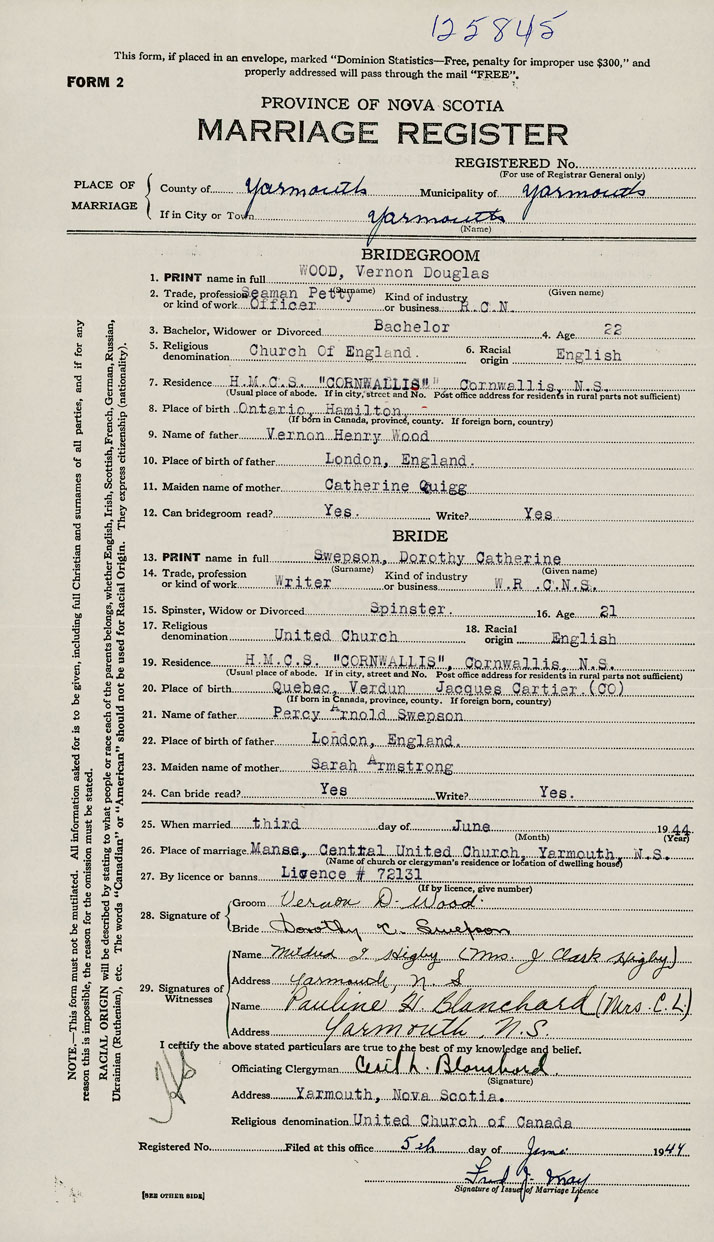 125845
This form, if placed in an envelope, marked "Dominion Statistics—Free, penalty for improper use $300," and
properly addressed will pass through the mail "FREE".
FORM 2
PROVINCE OF NOVA SCOTIA
MARRIAGE REGISTER
REGISTERED No.
(For use of Registrar General only)
PLACE OF MARRIAGE
County of Yarmouth Municipality of Yarmouth
If in City or Town Yarmouth
(Name)
BRIDEGROOM
1. PRINT name in full WOOD, Vernon Douglas
(Surname) (Given name)
2. Trade, profession or kind of work Seaman Petty Officer Kind of industry or business R.C.N.
3. Bachelor, Widower or Divorced Bachelor 4. Age 22
5. Religious denomination Church Of England. 6. Racial origin English
7. Residence H.M.C.S. "CORNWALLIS" Cornwallis, N.S.
(Usual place of abode. If in city, street and No. Post office address for residents in rural parts not sufficient)
8. Place of birth Ontario, Hamilton,
(If born in Canada, province, county. If foreign born, country)
9. Name of father Vernon Henry Wood
10. Place of birth of father London, England.
11. Maiden name of mother Catherine Quigg
12. Can bridegroom read? Yes. Write? Yes
BRIDE
13. PRINT name in full Swepson, Dorothy Catherine
(Surname) (Given name)
14. Trade, profession or kind of work Writer Kind of industry or business W.R .C.N.S.
15. Spinster, Widow or Divorced Spinster. 16. Age 21
17. Religious denomination United Church 18. Racial origin English
19. Residence H.M.C.S. "CORNWALLIS", Cornwallis, N.S.
(Usual place of abode. If in city, street and No. Post office address for residents in rural parts not sufficient)
20. Place of birth Quebec, Verdun Jacques Cartier.(CO)
(If born in Canada, province, county. If foreign born, country)
21. Name of father Percy Arnold Swepson
22. Place of birth of father London, England.
23. Maiden name of mother Sarah Armstrong
24. Can bride read? Yes Write? Yes.
25. When married third day of June 1944
(Month) (Year)
26. Place of marriage Manse, Central United Church, Yarmouth, N.S.
(Name of church or clergyman's residence or location of dwelling house)
27. By licence or banns Licence # 72131
(If by licence, give number)
28. Signature of
Groom Vernon D. Wood
Bride Dorothy C. Swepson
29. Signatures of Witnesses
Name Mildred I Higby (Mrs. J Clark Higby)
Address Yarmouth, N. S
Name Pauline H. Blanchard (Mrs. C.L.)
Address Yarmouth, N.S.
I certify the above stated particulars are true to the best of my knowledge and belief.
Officiating Clergyman Cecil L. Blanchard
(Signature)
Address Yarmouth, Nova Scotia.
Religious denomination United Church of Canada
Registered No. Filed at this office 5th day of June 1944
Signature of Issuer of Marriage Licence
[SEE OTHER SIDE]
NOTE.—This form must not be mutilated. All information asked for is to be given, including full Christian and surnames of all parties, and if for any
reason this is impossible, the reason for the omission must be stated.
RACIAL ORIGIN will be described by stating to what people or race each of the parents belongs, whether English, Irish, Scottish, French, German, Russian,
Ukrainian (Ruthenian), etc. The words "Canadian" or "American" should not be used for Racial Origin. They express citizenship (nationality).